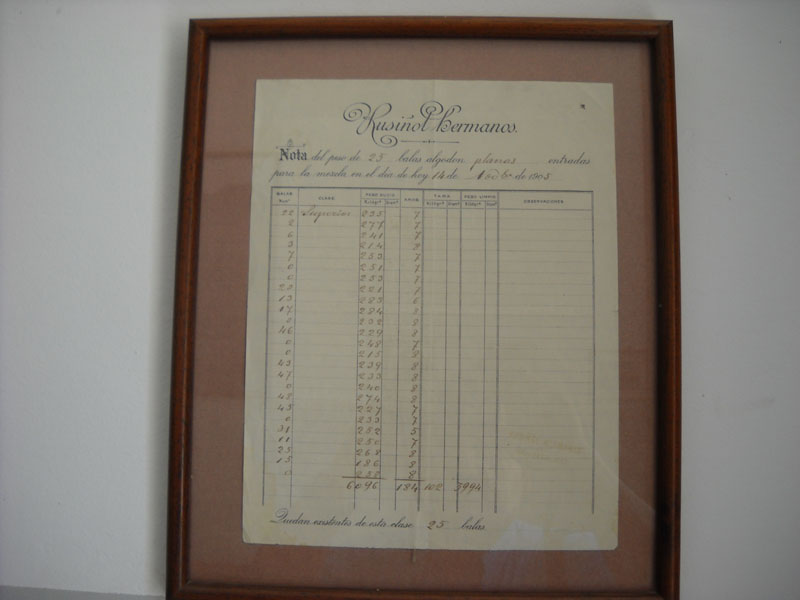 Rusiñol Hermanos.
Nota del peso de 25 balas algodon planas entradas
para la mezcla en el dia de hoy 14 de Nobbre de 1905
BALAS Num.º CLASE PESO BRUTO Kilogs. AROS TARA Kilogs. PESO LIMPIO Kilogs. OBSERVACIONES
22 Superior 235 7
2 277 7
6 241 7
3 214 8
7 253 7
0 251 7
0 253 7
22 221 7
13 283 6
17 284 8
2 232 8
46 229 8
0 248 7
0 215 8
43 239 8
47 233 8
0 240 8
48 274 8
43 227 7
0 233 7
31 252 5
11 250 7
25 268 8
15 186 8
0 258 8
6096 184 102 3994
Quedan existentes de esta clase 25 balas